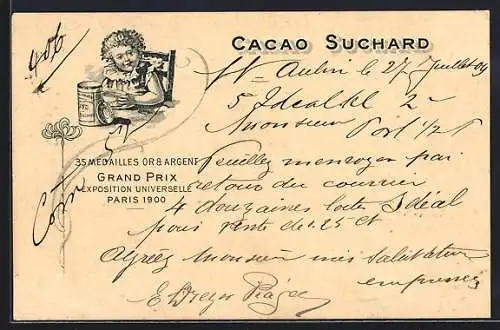 406
CACAO SUCHARD
St Aubin le 27 Juillet 09
5 Idealkl 2
Monsieur Port 1/2
35 MEDAILLES OR & ARGENT
GRAND PRIX
EXPOSITION UNIVERSELLE
PARIS 1900
Veuillez m'envoyer par
retour du courrier
4 douzaines boite Idéal
pour vente de 25 ct
Agréez Monsieur mes salutations
empressées